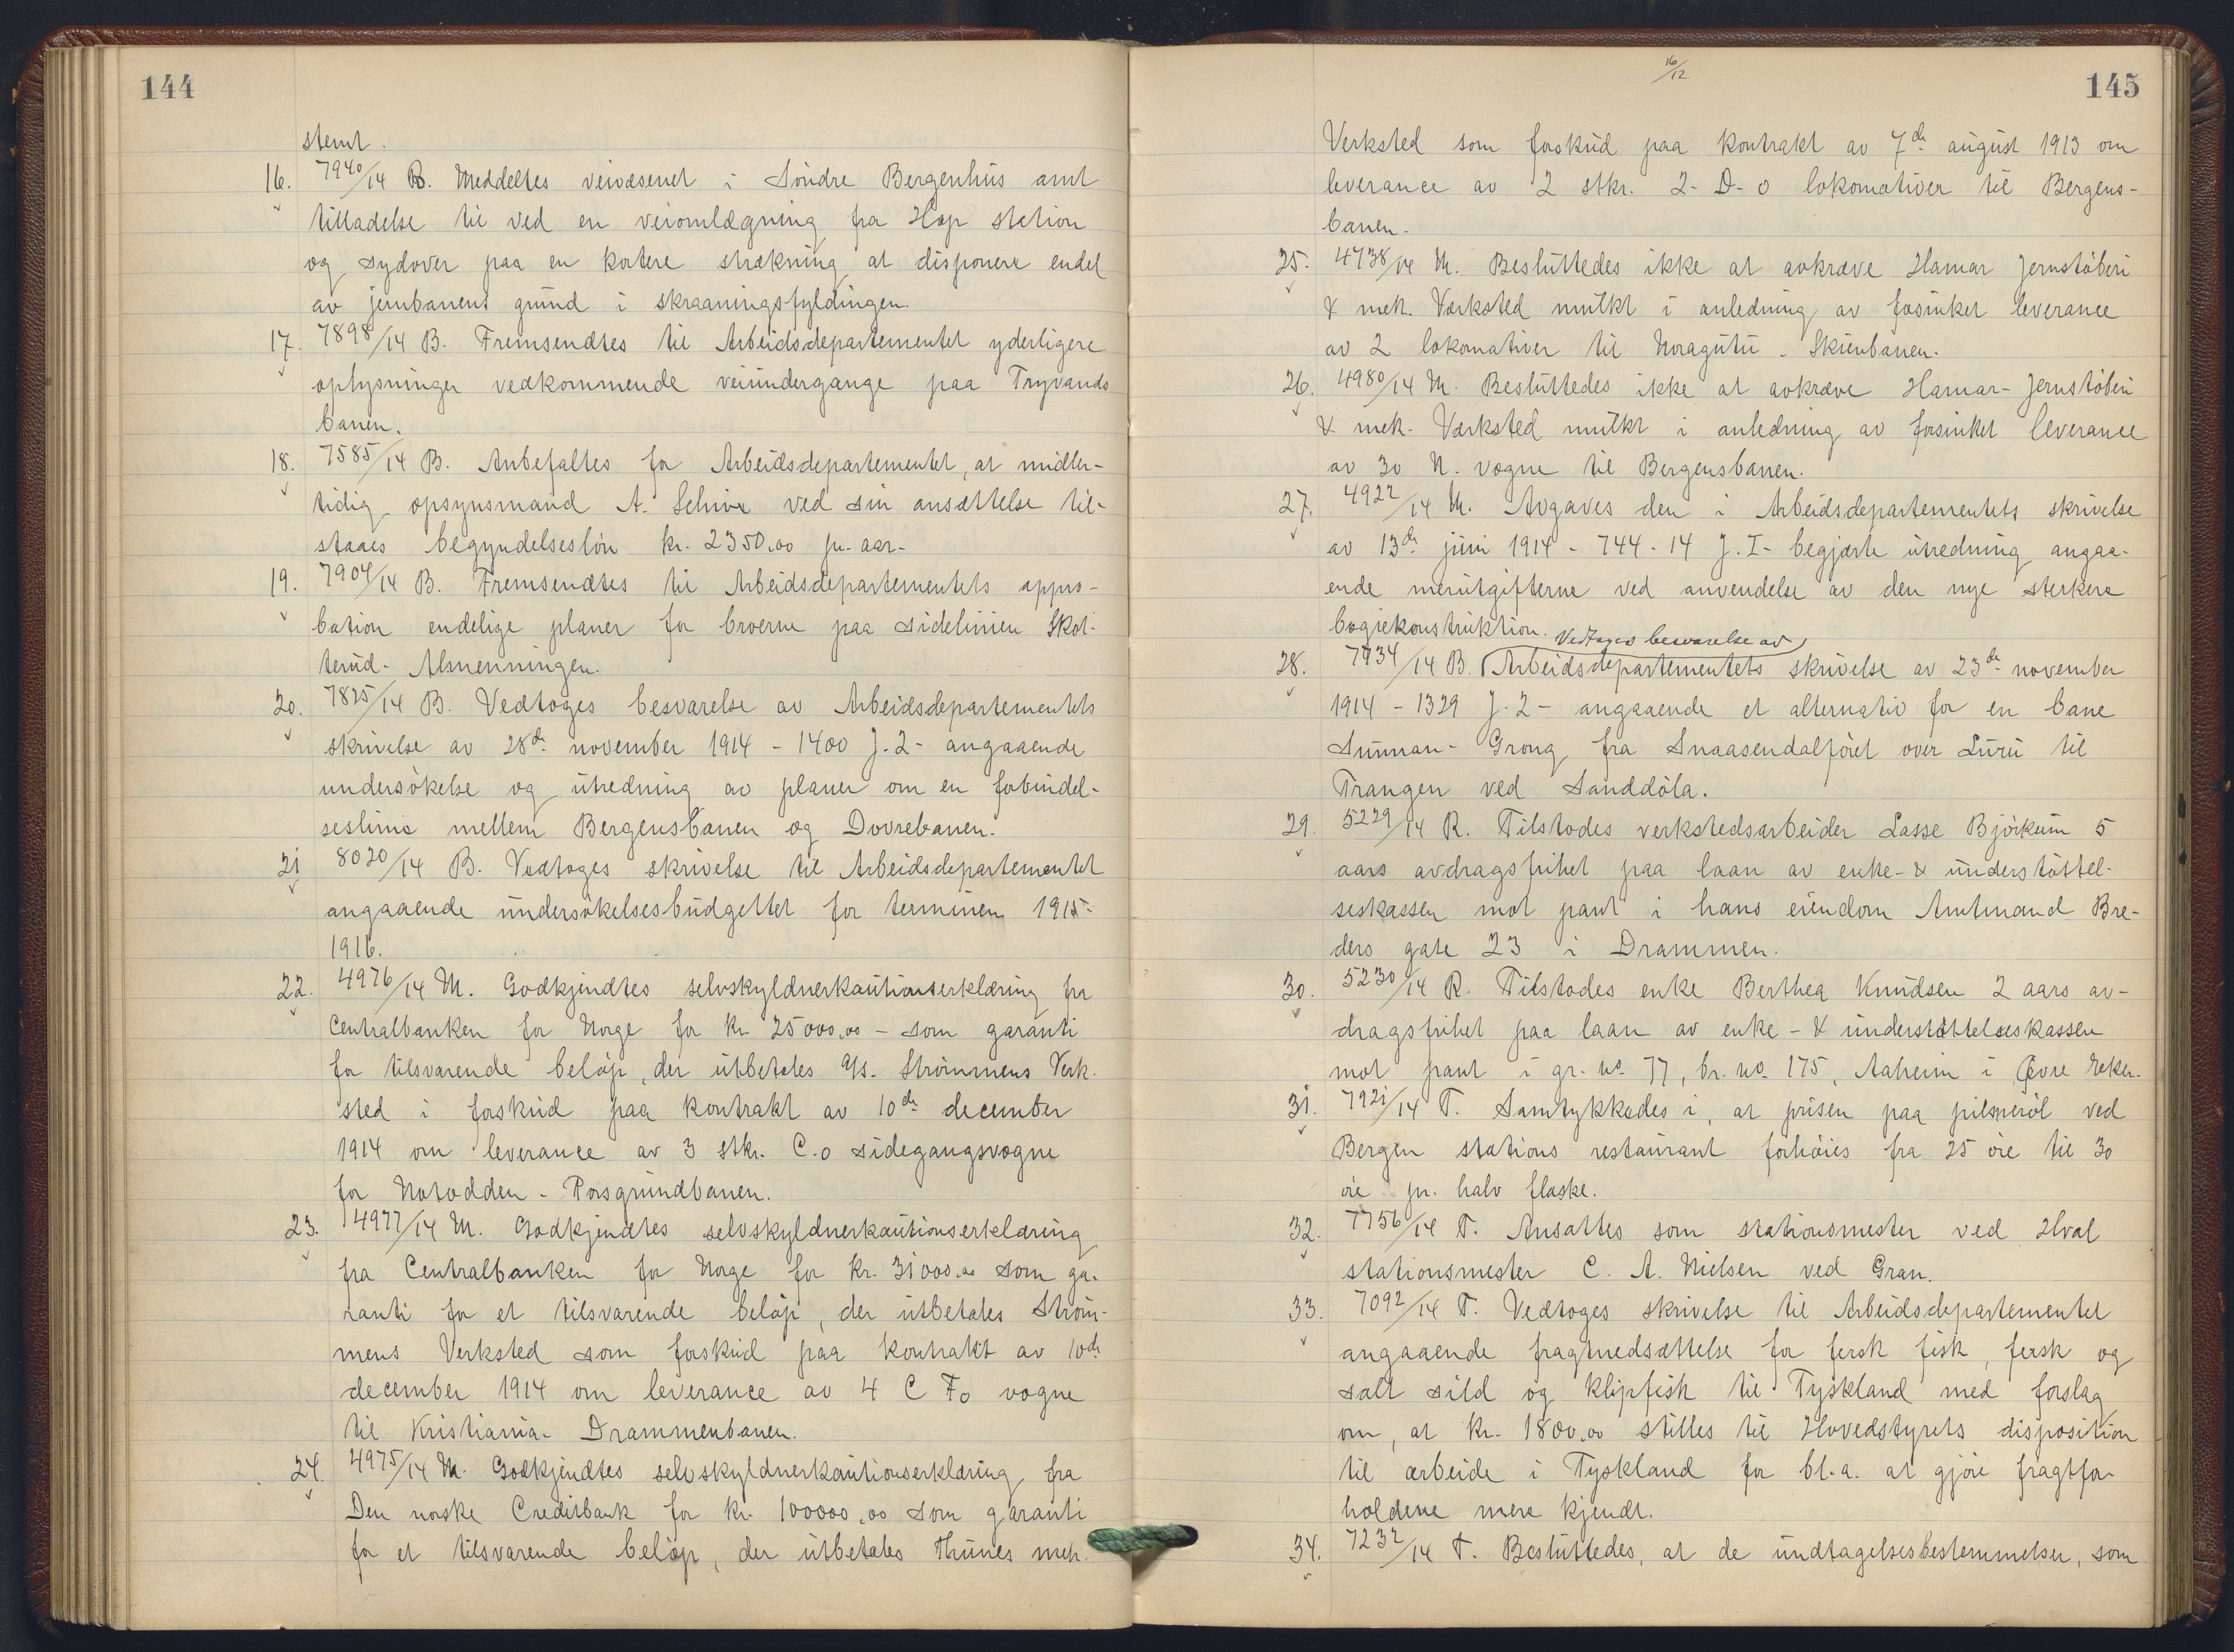 144
stemt.
16. 7940/14 B. Meddeltes veivæsenet i Söndre Bergenhus amt
tilladelse til ved en veiomlægning fra Hop station
og sydover paa en kortere strækning at disponere endel
av jernbanens grund i skraaningsfyldingen.
17. 7898/14 B. Fremsendtes til Arbeidsdepartementet yderligere
oplysninger vedkommende veiundergange paa Tryvands
banen.
18. 7585/14 B. Anbefaltes for Arbeidsdepartementet, at midler-
tidig opsynsmand A. Schive ved sin ansættelse til-
staaes begyndelseslön kr. 2350.00 pr. aar.
19. 7904/14 B. Fremsendtes til Arbeidsdepartementets appro-
bation endelige planer for broerne paa sidelinien Skot-
terud - Alsnenningen.
20. 7825/14 B. Vedtoges besvarelse av Arbeidsdepartementets
skrivelse av 28de november 1914 - 1400 J. 2 - angaaende
undersökelse og utredning av planer om en forbindel-
seslinie mellem Bergensbanen og Dovrebanen.
21 8020/14 B. Vedtoges skrivelse til Arbeidsdepartementet
angaaende undersökelsesbudgettet for terminen 1915-
1916.
22. 4976/14 M. Godkjendtes selvskyldnerkautionserklæring fra
Centralbanken for Norge for kr. 25000.00 - som garanti
for tilsvarende belöp, der utbetales A/S. Strömmens Verk-
sted i forskud paa kontrakt av 10de december
1914 om leverance av 3 stkr. C.o sidegangsvogne
for Notodden - Porsgrundbanen.
23. 4977/14 M. Godkjendtes selvskyldnerkautionserklæring
fra Centralbanken for Norge for kr. 31000.00 som ga-
ranti for et tilsvarende belöp, der utbetales Ström-
mens Verksted som forskud paa kontrakt av 10de
december 1914 om leverance av 4 C Fo vogne
til Kristiania - Drammenbanen.
24. 4975/14 M. Godkjendtes selvskyldnerkautionserklæring fra
Den norske Creditbank for kr. 100000.00 som garanti
for et tilsvarende belöp, der utbetales Thunes mek.
16/12
145
Verksted som forskud paa kontrakt av 7de august 1913 om
leverance av 2 stkr. 2-D-o lokomotiver til Bergens-
banen.
25. 4738/14 M. Besluttedes ikke at avkræve Hamar Jernstöberi
& mek. Værksted mulkt i anledning av forsinket leverance
av 2 lokomotiver til Noragutu - Skienbanen.
26. 4980/14 M. Besluttedes ikke at avkræve Hamar - Jernstöberi
& mek. Værksted mulkt i anledning av forsinket leverance
av 30 N. vogne til Bergensbanen.
27. 4922/14 M. Avgaves den i Arbeidsdepartementets skrivelse
av 13de juni 1914 - 744 - 14 J. I - begjærte utredning angaa-
ende merutgifterne ved anvendelse av den nye sterkere
bogiekonstruktion.
Vedtages besvarelse av
28. 7934/14 B. Arbeidsdepartementets skrivelse av 23de november
1914 - 1329 J. 2 - angaaende et alternativ for en bane
Sunnan - Grong fra Snaasendalföret over Luru til
Trangen ved Sanddöla.
29. 5229/14 R. Tilstodes verkstedsarbeider Lasse Björkum 5
aars avdragsfrihet paa laan av enke- & understöttel-
seskassen mot pant i hans eiendom Amtmand Bre-
ders gate 23 i Drammen.
30. 5230/14 R. Tilstodes enke Berthea Knudsen 2 aars av-
dragsfrihet paa laan av enke - & understöttelseskassen
mot pant i gr. no. 77, br. no. 175, Aaheim i Övre Eker.
31. 7921/14 T. Samtykkedes i, at prisen paa pilsneröl ved
Bergen stations restaurant forhöies fra 25 öre til 30
öre pr. halv flaske.
32. 7756/14 T. Ansattes som stationsmester ved Hval
stationsmester C. A. Nielsen ved Gran.
33. 7092/14 T. Vedtoges skrivelse til Arbeidsdepartementet
angaaende fragtnedsættelse for fersk fisk, fersk og
salt sild og klipfisk til Tyskland med forslag
om, at kr. 1800.00 stilles til Hovedstyrets disposition
til arbeide i Tyskland for bl.a. at gjöre fragtfor-
holdene mere kjendt.
34. 7232/14 T. Besluttedes, at de undtagelsesbestemmelser, som